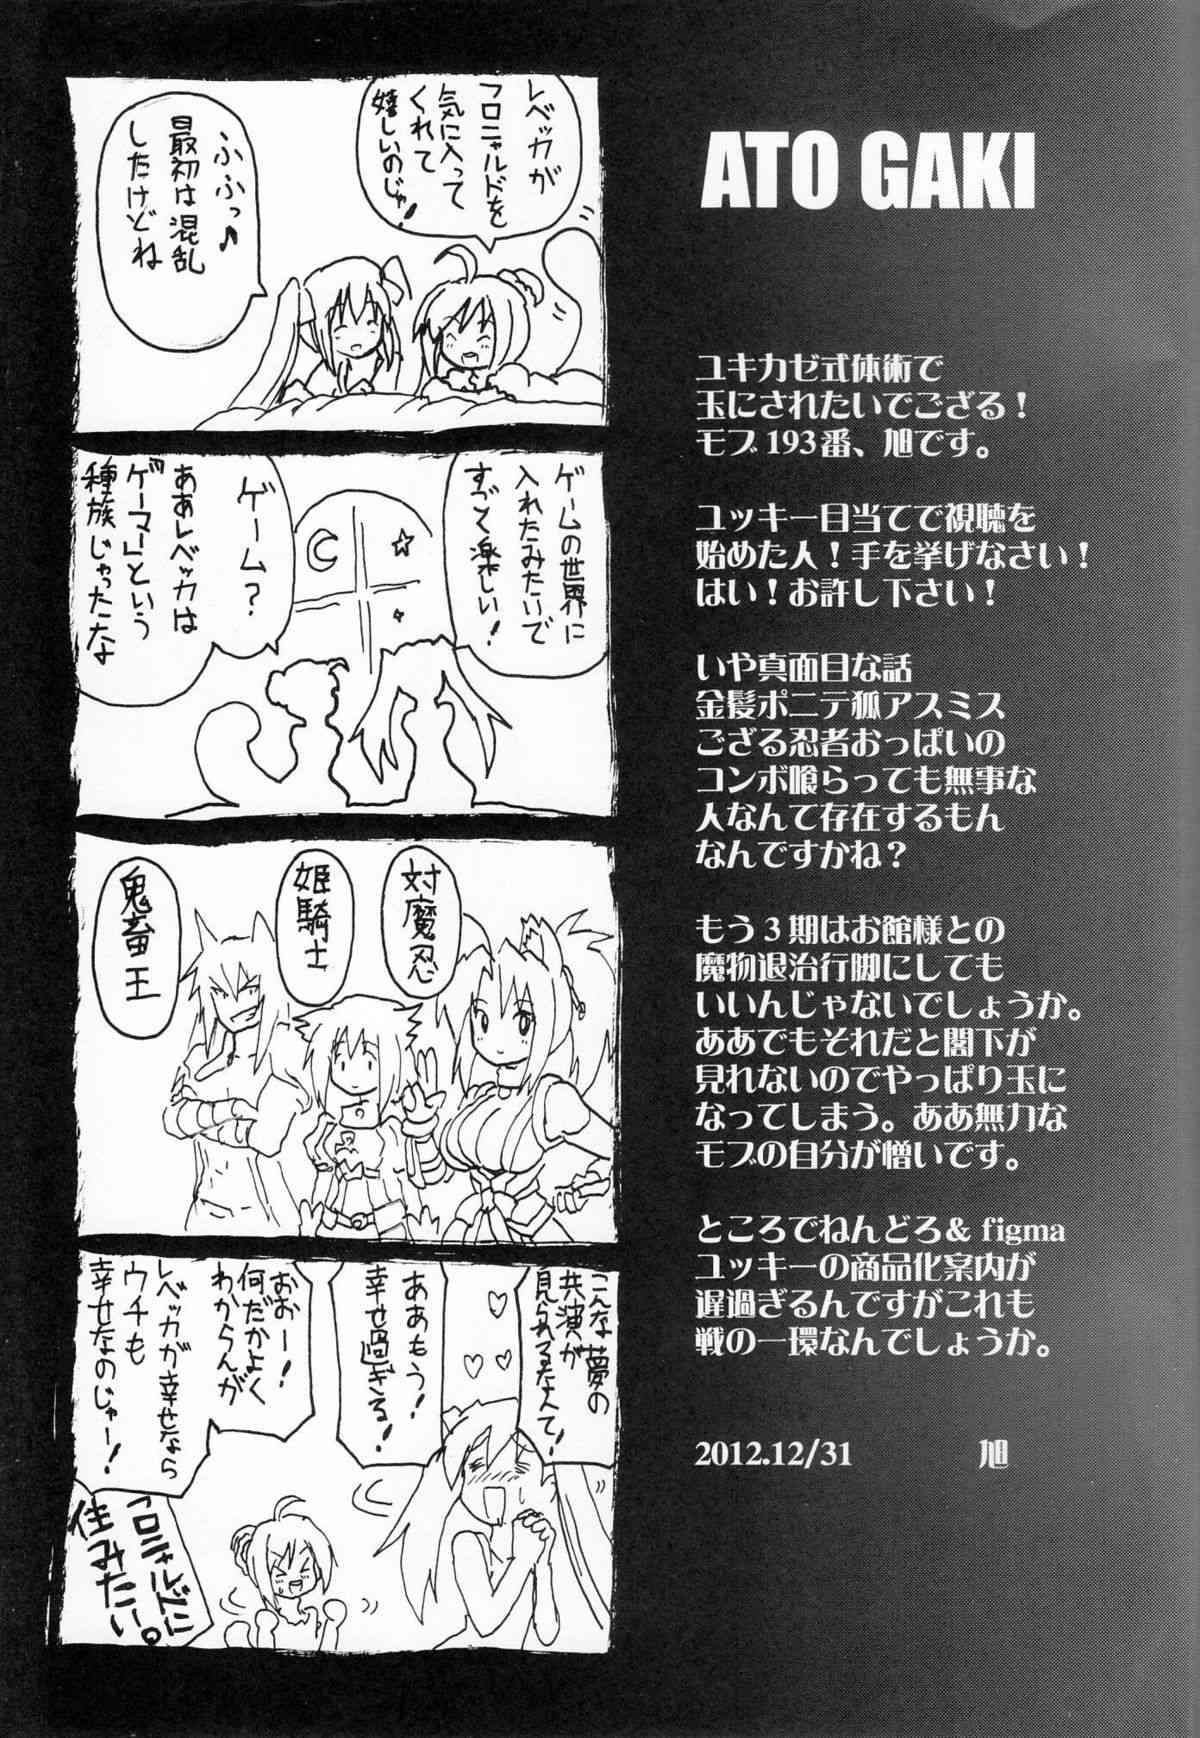 ATO GAKI
レベッカが
フロニャルドを
気に入って
くれて
嬉しいのじゃ!
ふふっ♪
最初は混乱
したけどね
ゲームの世界に
入れたみたいで
すごく楽しい!
ゲーム?
ああレベッカは
"ゲーマー"という
種族じゃったな
対魔忍
姫騎士
鬼畜王
こんな夢の
共演が
見られるなんて!
ああもう!
幸せ過ぎる!
おおー!
何だかよく
わからんが
レベッカが幸せなら
ウチも
幸せなのじゃー!
フロニャルドに
住みたい。
ユキカゼ式体術で
玉にされたいでござる!
モブ193番、旭です。
ユッキー目当てで視聴を
始めた人!手を挙げなさい!
はい!お許し下さい!
いや真面目な話
金髪ポニテ狐アスミス
ござる忍者おっぱいの
コンボ喰らっても無事な
人なんて存在するもん
なんですかね?
もう3期はお館様との
魔物退治行脚にしても
いいんじゃないでしょうか。
ああでもそれだと閣下が
見れないのでやっぱり玉に
なってしまう。ああ無力な
モブの自分が憎いです。
ところでねんどろ& figma
ユッキーの商品化案内が
遅過ぎるんですがこれも
戦の一環なんでしょうか。
2012.12/31 旭